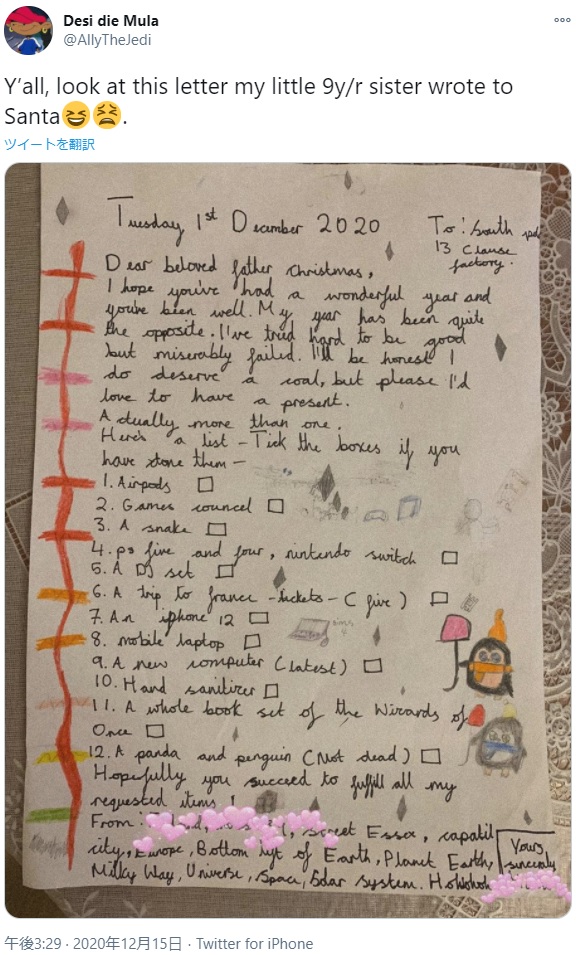 Desi die Mula
@AllyTheJedi
Y’all, look at this letter my little 9y/r sister wrote to
Santa😆😫.
ツイートを翻訳
Tuesday 1st December 2020
To: South
13 Clause
factory.
Dear beloved father Christmas,
I hope you've had a wonderful year and
you've been well. My year has been quite
the opposite. I've tried hard to be good
but miserably failed. I'll be honest I
do deserve a coal, but please I'd
love to have a present.
Actually more than one.
Here's a list - Tick the boxes if you
have done them -
1. Airpods
2. Games councel
3. A snake
4. ps five and four, nintendo switch
5. A DJ set
6. A trip to france - tickets - ( five )
7. An iphone 12
8. mobile laptop
9. A new computer (latest)
10. Hand sanitizer
11. A whole book set of the Wizards of
Once
12. A panda and penguin (Not dead)
Hopefully you succeed to fulfill all my
requested items !
From: street Essex, capatil
city, Europe, Bottom of Earth, Planet Earth,
Milky Way, Universe, Space, Solar system. Hohohoh
Yours
sincerely
午後3:29 · 2020年12月15日 · Twitter for iPhone